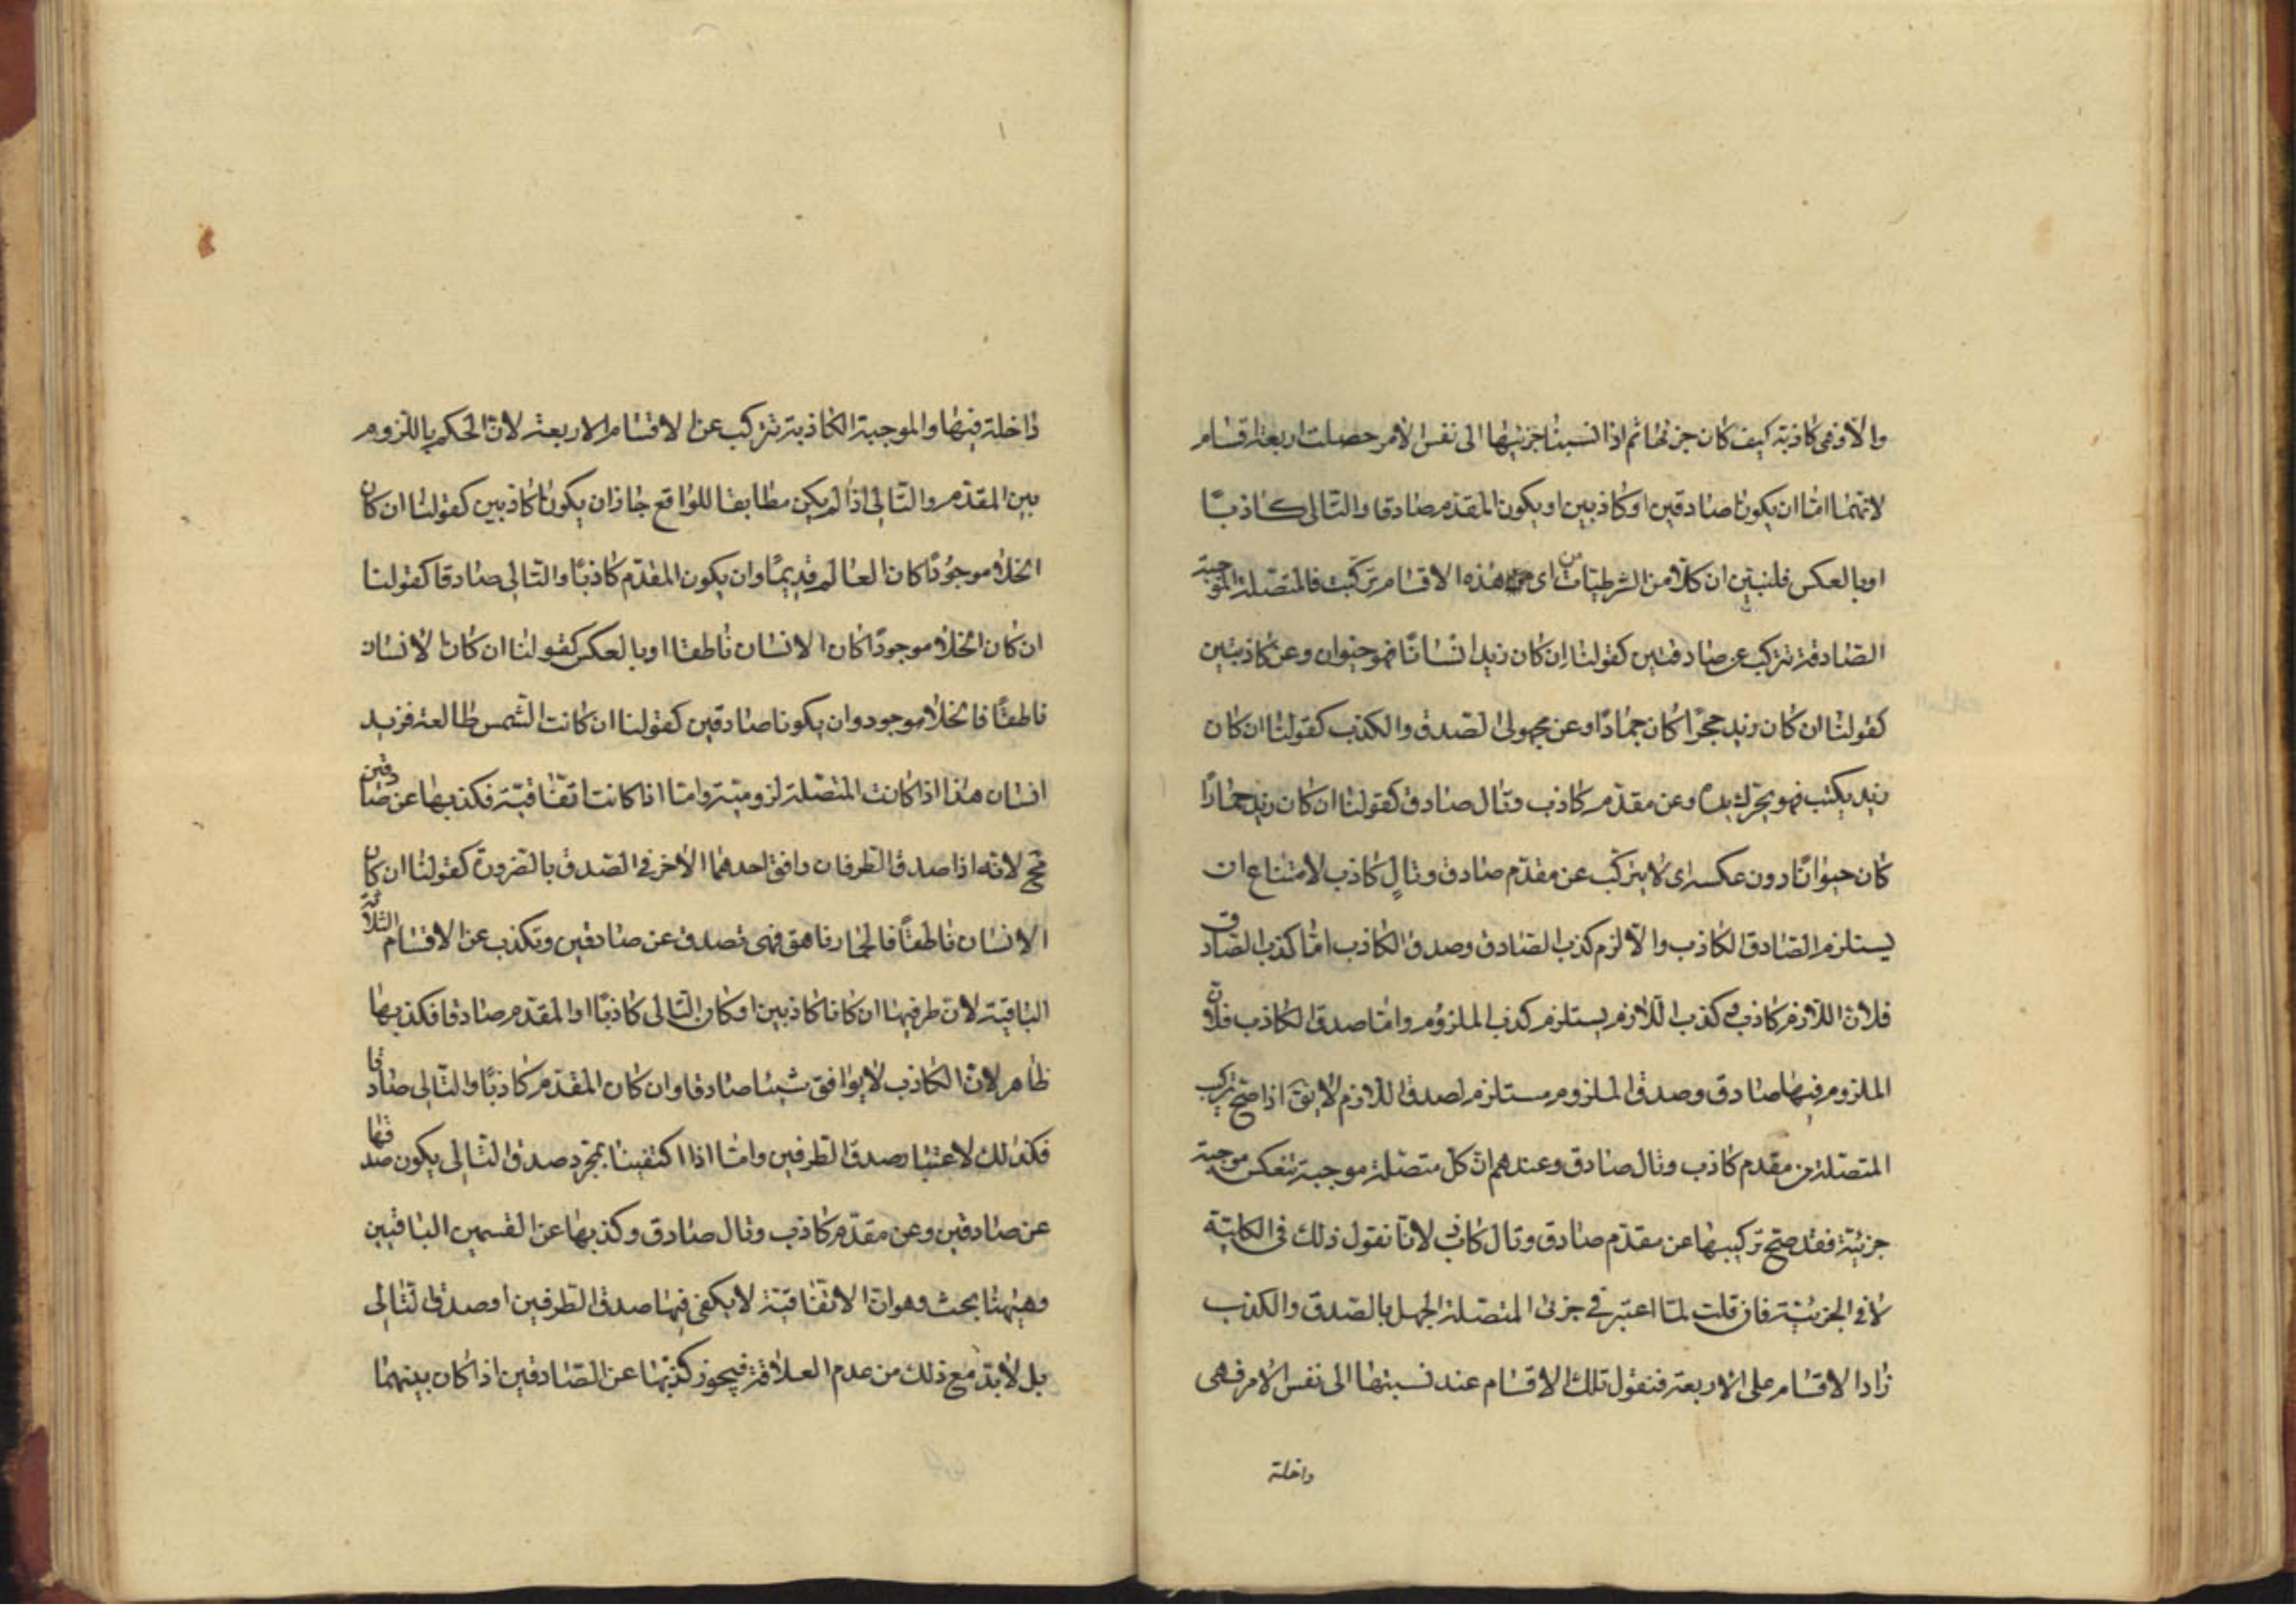 والا فهى كاذبة كيف كان جزئها ثم اذا نسبنا جزئيها الى نفس الامر حصلت اربعة اقسام
لانهما اما ان يكونا صادقين او كاذبين او يكون المقدم صادقا والتالى كاذبًا
او بالعكس فلنبين ان كلا من الشرطيات من اى هذه الاقسام تركبت فالمتصلة الموجبة
الصادقة تتركب عن صادقين كقولنا ان كان زيد انسانًا فهو حيوان وعن كاذبين
كقولنا ان كان زيد حجرًا كان جمادًا وعن مجهولى الصدق والكذب كقولنا ان كان
زيد يكتب فهو يحرك يده وعن مقدم كاذب وتال صادق كقولنا ان كان زيد حمارًا
كان حيوانًا دون عكسه اى لا يتركب عن مقدم صادق وتالٍ كاذب لامتناع ان
يستلزم الصادق الكاذب والا لزم كذب الصادق وصدق الكاذب اما كذب الصادق
فلان اللازم كاذب وكذب اللازم يستلزم كذب الملزوم واما صدق الكاذب فلان
الملزوم فيها صادق وصدق الملزوم مستلزم لصدق اللازم لا يق اذا صح تركب
المتصلة من مقدم كاذب وتال صادق وعندهم ان كل متصلة موجبة تنعكس موجبة
جزئية فقد صح تركيبها عن مقدم صادق وتال كاذب لانا نقول ذلك فى الكلية
لا فى الجزئية فان قلت لما اعتبر فى جزئى المتصلة الجهل بالصدق والكذب
زاد الاقسام على الاربعة فنقول تلك الاقسام عند نسبتها الى نفس الامر فهى
داخلة
داخلة فيها والموجبة الكاذبة تتركب عن الاقسام الاربعة لان الحكم باللزوم
بين المقدم والتالى اذا لم يكن مطابقا للواقع جاز ان يكونا كاذبين كقولنا ان كان
الخلاء موجودًا كان العالم قديمًا وان يكون المقدم كاذبًا والتالى صادقا كقولنا
ان كان الخلاء موجودًا كان الانسان ناطقا او بالعكس كقولنا ان كان الانسان
ناطقًا فالخلاء موجود وان يكونا صادقين كقولنا ان كانت الشمس طالعة فزيد
انسان هذا اذا كانت المتصلة لزومية واما اذا كانت اتفاقية فكذبها عن صادقين
مح لانه اذا صدق الطرفان وافق احدهما الاخر فى الصدق بالضرورة كقولنا ان كان
الانسان ناطقًا فالحمار ناهق فهى تصدق عن صادقين وتكذب عن الاقسام الثلاثة
الباقية لان طرفيها ان كانا كاذبين او كان التالى كاذبًا والمقدم صادقا فكذبها
ظاهر لان الكاذب لا يوافق شيئا صادقا وان كان المقدم كاذبًا والتالى صادقا
فكذلك لاعتبار صدق الطرفين واما اذا اكتفينا بمجرد صدق التالى يكون صدقها
عن صادقين وعن مقدم كاذب وتال صادق وكذبها عن القسمين الباقيين
وهيهنا بحث وهو ان الاتفاقية لا يكفى فيها صدق الطرفين او صدق التالى
بل لابد مع ذلك من عدم العلاقة فيجوز كذبها عن الصادقين اذا كان بينهما